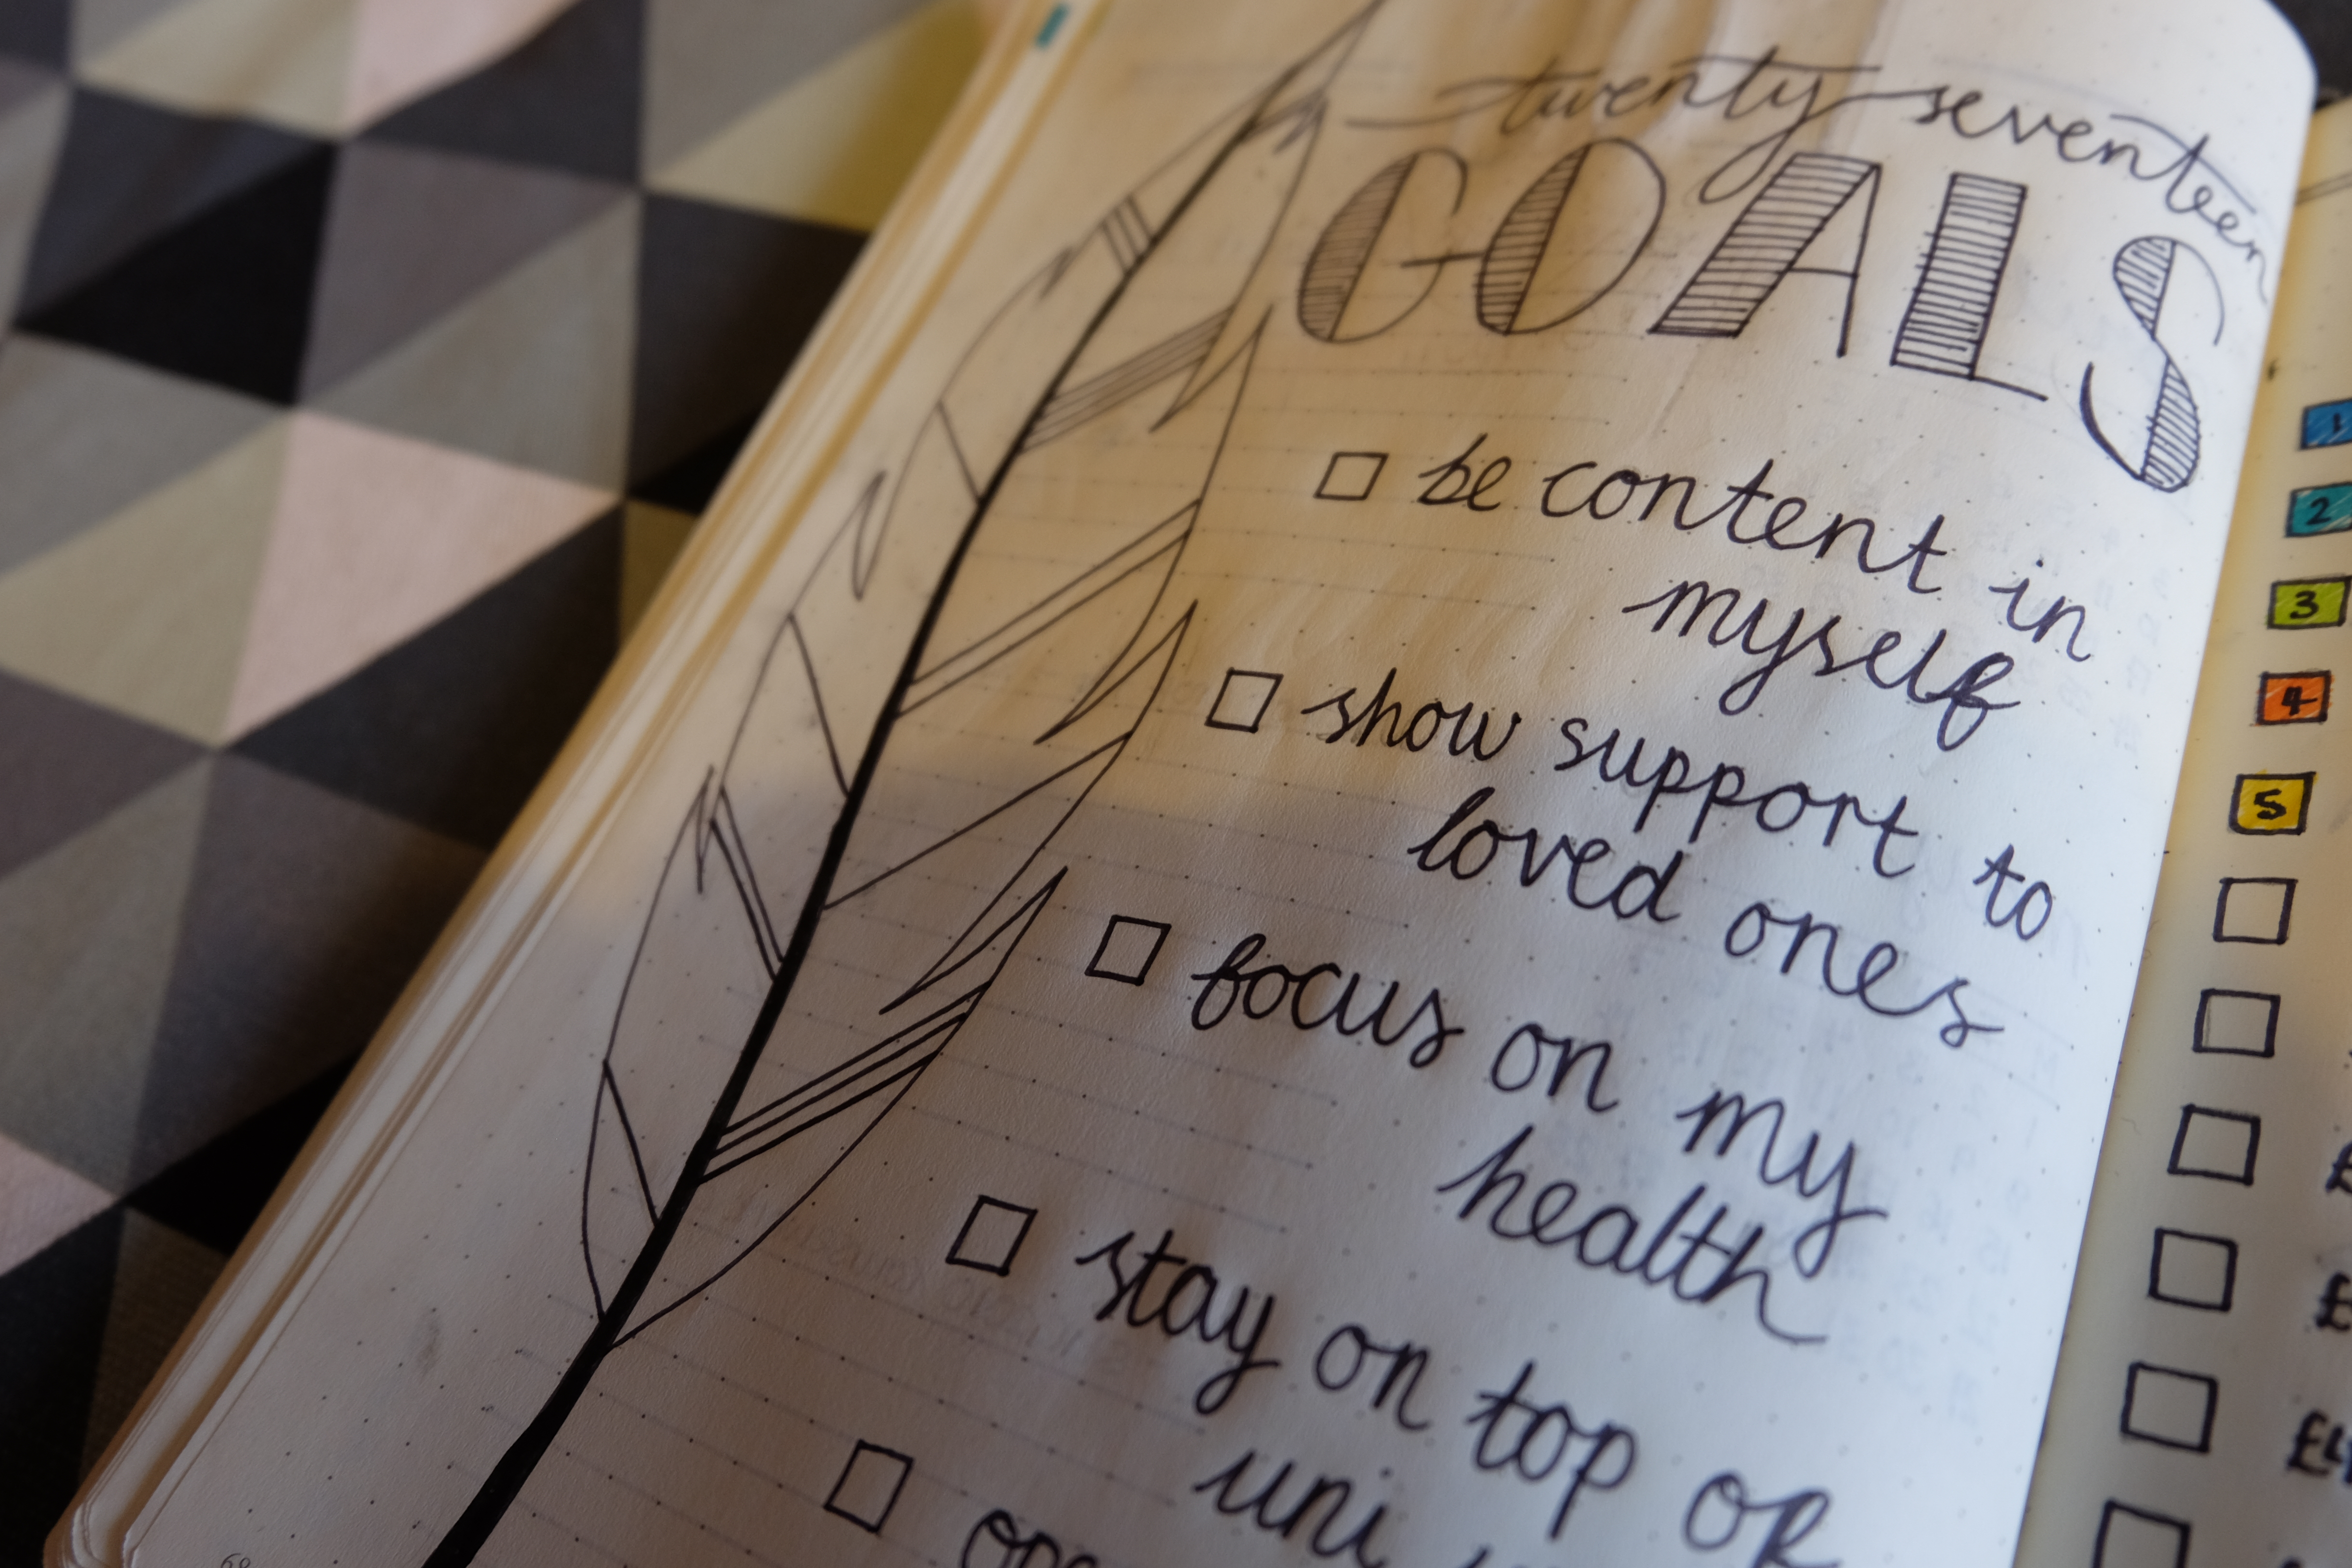 twenty seventeen
GOALS
be content in
myself
show support to
loved ones
focus on my
health
stay on top of
uni
1
2
3
4
5